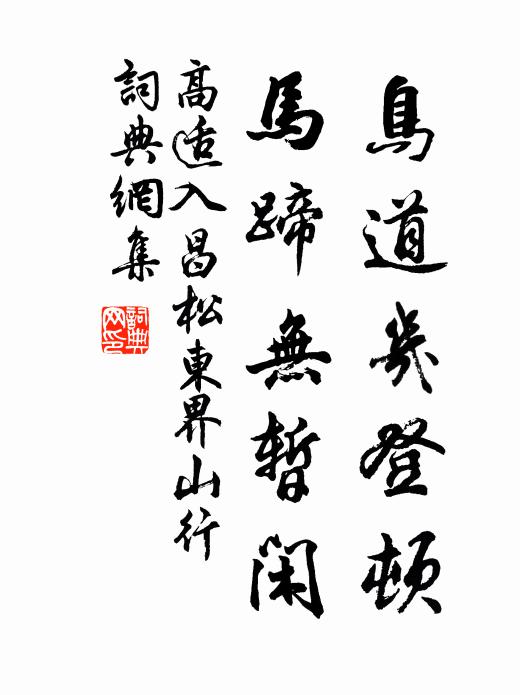 鳥道幾登頓
馬蹄無暫閑
高适入昌松東界山行
詞典網集
詞典网印